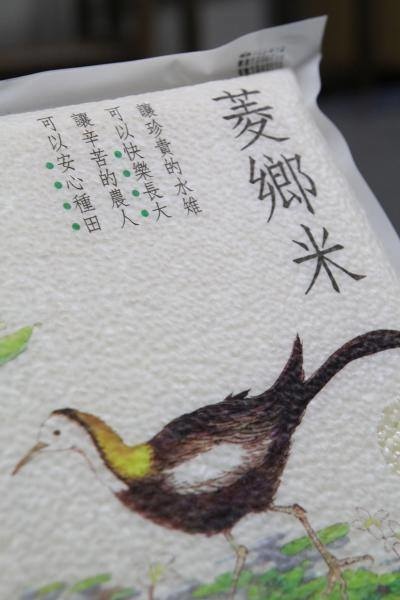 菱鄉米
讓珍貴的水雉
可以快樂長大
讓辛苦的農人
可以安心種田